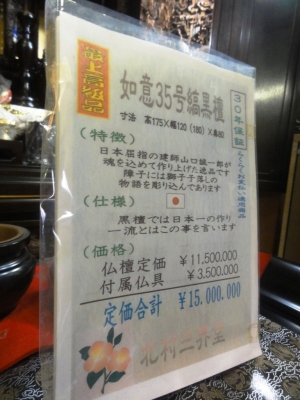 最上高級品
如意35号縞黒檀
寸法 高175×幅120(180)×奥80
30年保証
(特徴)
日本屈指の建師山口誠一郎が
魂を込めて作り上げた逸品です
障子には獅子子落しの
物語を彫り込んであります
(仕様)
黒檀では日本一の作り
一流とはこの事を言います
(価格)
仏壇定価 ¥11,500,000
付属仏具 ¥3,500,000
定価合計 ¥15,000,000